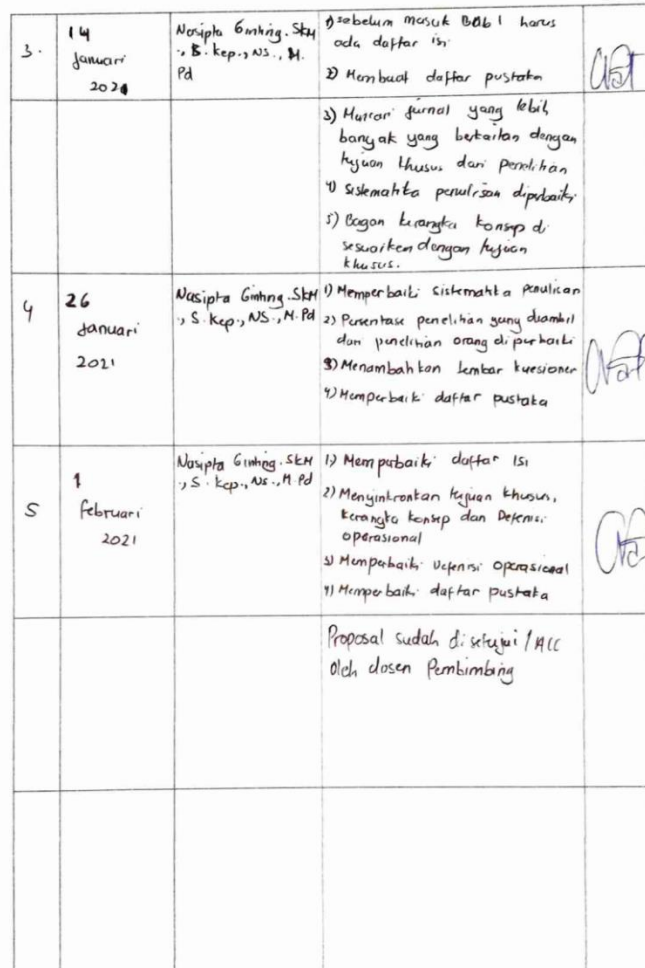 3.
14
Januari
2021
Nasipta Ginting. SKM
., S. Kep., NS., M.
Pd
1) sebelum masuk BAB 1 harus
ada daftar isi
2) Membuat daftar pustaka
3) Mencari jurnal yang lebih
banyak yang berkaitan dengan
tujuan khusus dari penelitian
4) Sistematika penulisan diperbaiki
5) Bagan kerangka konsep di
sesuaiken dengan tujuan
khusus.
4
26
Januari
2021
Nasipta Ginting. SKM
., S. Kep., NS., M. Pd
1) Memperbaiki sistematika penulisan
2) Persentase penelitian yang diambil
dari penelitian orang diperbaiki
3) Menambahkan lembar kuesioner
4) Memperbaiki daftar pustaka
5
1
Februari
2021
Nasipta Ginting. SKM
., S. Kep., NS., M. Pd
1) Memperbaiki daftar isi
2) Menyinkronkan tujuan khusus,
kerangka konsep dan Defenisi
operasional
3) Memperbaiki Defenisi operasional
4) Memperbaiki daftar pustaka
Proposal sudah disetujui / ACC
oleh dosen Pembimbing